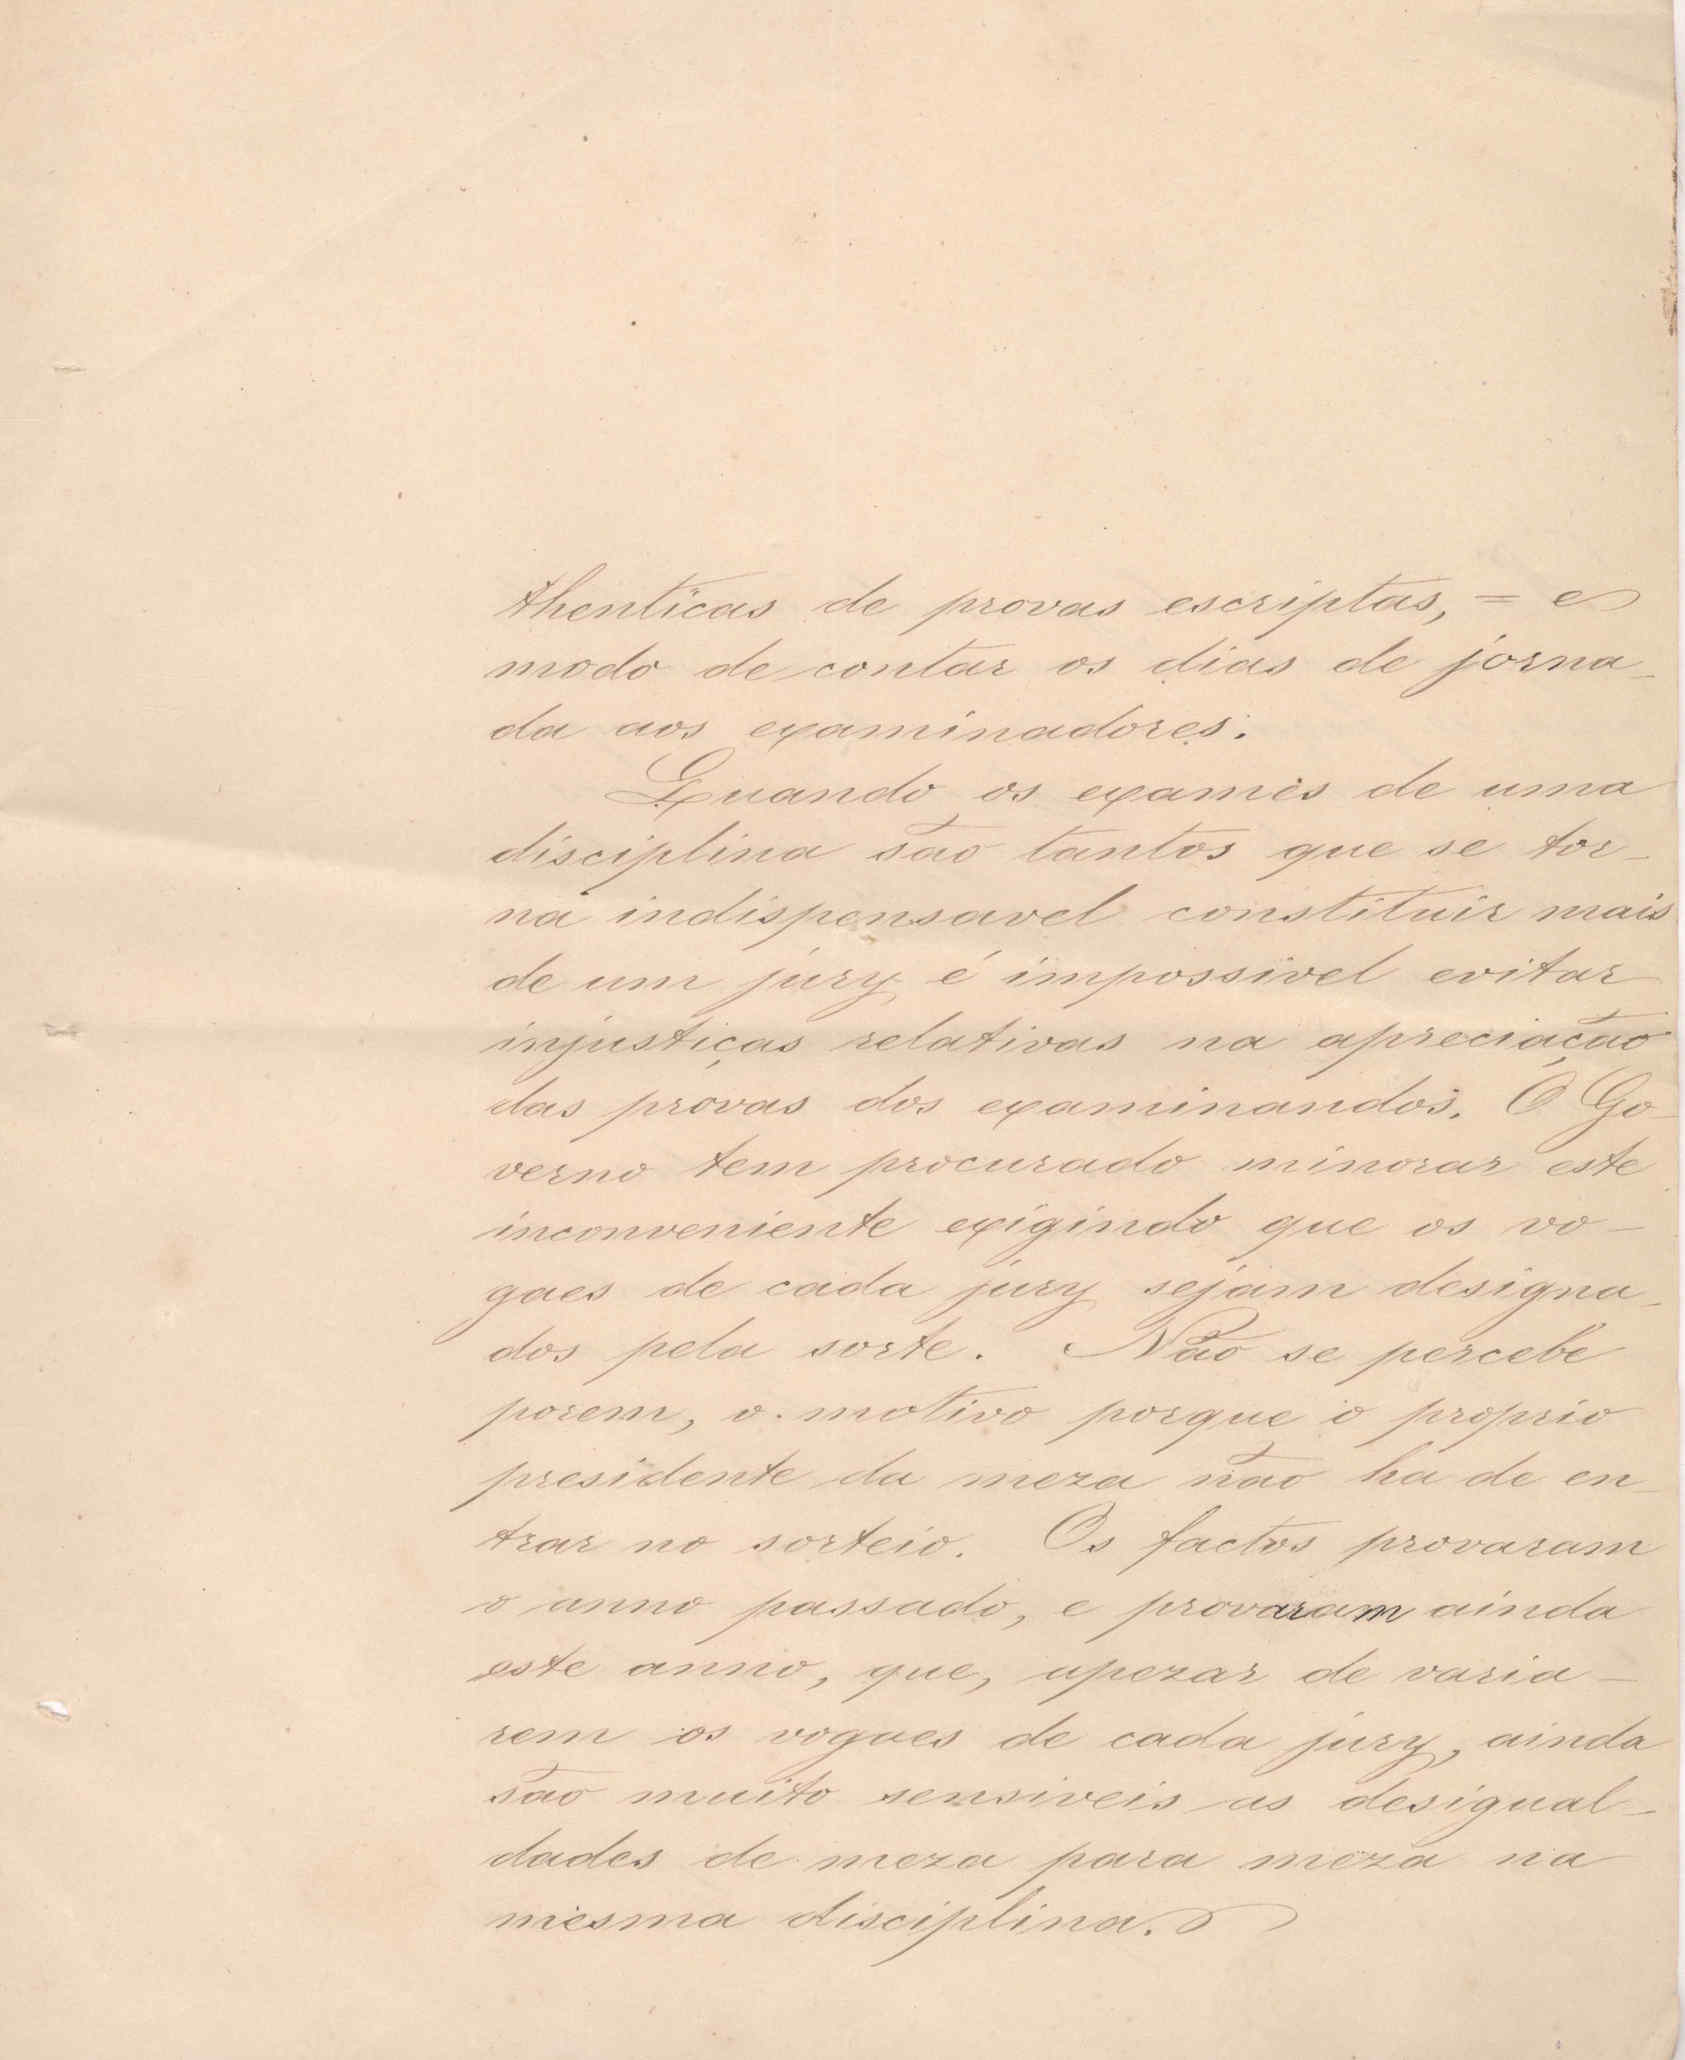 thenticas de provas escriptas, = e
modo de contar os dias de jorna-
da aos examinadores.
Quando os exames de uma
disciplina são tantos que se tor-
na indispensavel constituir mais
de um jury é impossivel evitar
injustiças relativas na apreciação
das provas dos examinandos. O Go-
verno tem procurado minorar este
inconveniente exigindo que os vo-
gaes de cada jury sejam designa-
dos pela sorte. Não se percebe
porem, o motivo porque o proprio
presidente da meza não ha de en-
trar no sorteio. Os factos provaram
o anno passado, e provaram ainda
este anno, que, apezar de varia-
rem os vogaes de cada jury, ainda
são muito sensiveis as desigual-
dades de meza para meza na
mesma disciplina.